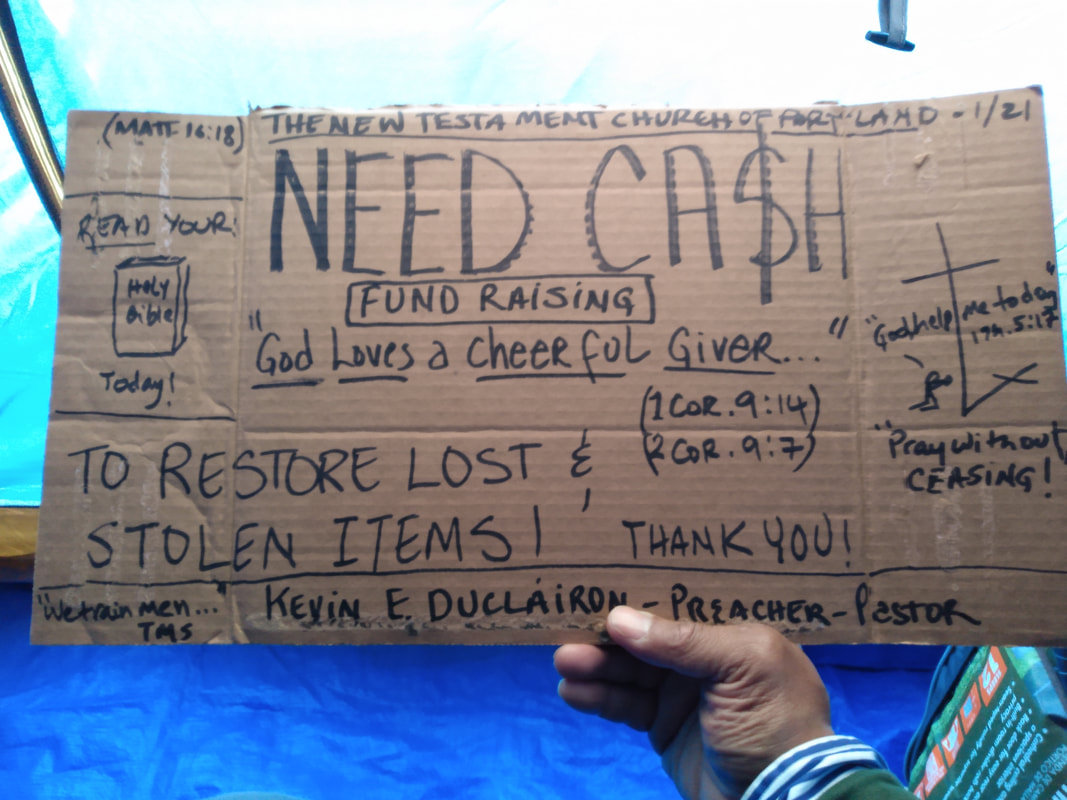 (MATT 16:18)
THE NEW TESTAMENT CHURCH OF PORT-LAND - 1/21
NEED CA$H
FUND RAISING
"God Loves a cheerful Giver..."
(1 COR. 9:14)
(2 COR. 9:7)
TO RESTORE LOST &
STOLEN ITEMS! THANK YOU!
READ YOUR:
Holy
Bible
Today!
"God help me today"
1Th. 5:17
"Pray without
CEASING!
"We train men..."
TMS
KEVIN E. DUCLAIRON - PREACHER - PASTOR